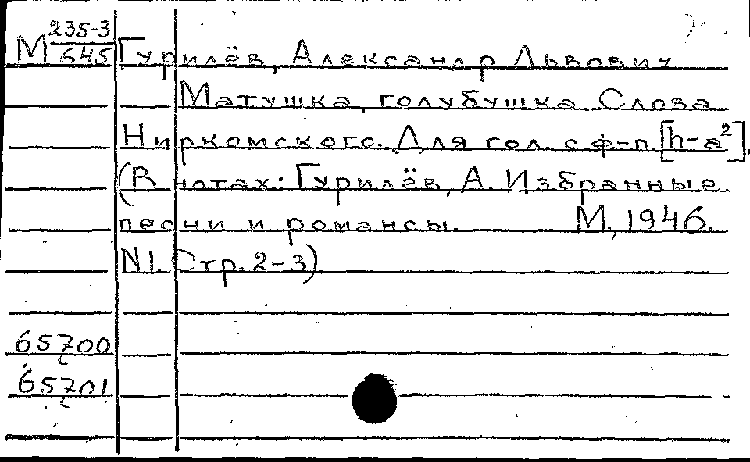 М 235-3/645 Гурилёв, Александр Львович
Матушка, голубушка. Слова
Ниркомского. Для гол. с ф-п. [h-a²].
(В нотах: Гурилёв, А. Избранные
песни и романсы. М., 1946.
N1. Стр. 2-3)
65700
65701